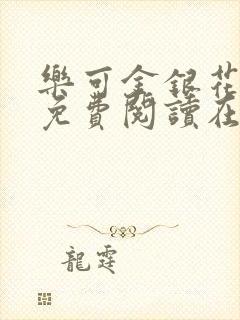 樂可金銀花
免費閱讀在
龍霆